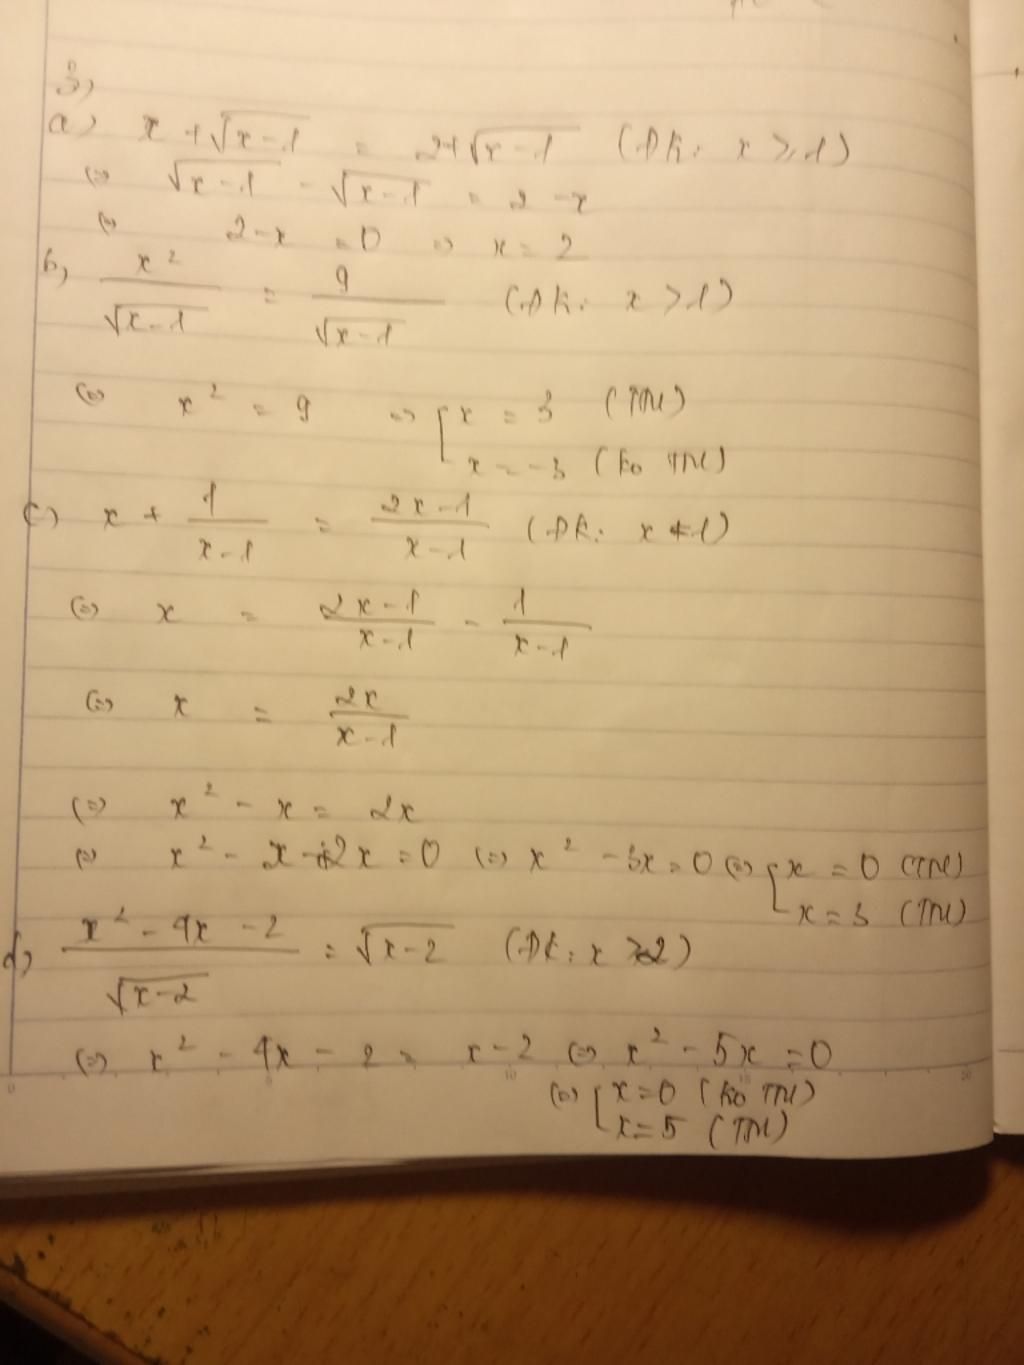 3)
a) x + √(x-1) = 2+√(x-1) (ĐK: x ≥ 1)
(=) √(x-1) - √(x-1) = 2 - x
(=) 2-x = 0 => x = 2
b) x²/√(x-1) = 9/√(x-1) (ĐK: x > 1)
(=) x² = 9 => [x = 3 (TM)
x = -3 (ko TM)
c) x + 1/(x-1) = (2x-1)/(x-1) (ĐK: x ≠ 1)
(=) x = (2x-1)/(x-1) - 1/(x-1)
(=) x = 2x/(x-1)
(=) x² - x = 2x
(=) x² - x - 2x = 0 (=) x² - 3x = 0 (=) [x = 0 (TM)
x = 3 (TM)
d) (x² - 4x - 2)/√(x-2) = √(x-2) (ĐK: x > 2)
(=) x² - 4x - 2 = x - 2 (=) x² - 5x = 0
(=) [x = 0 (ko TM)
x = 5 (TM)